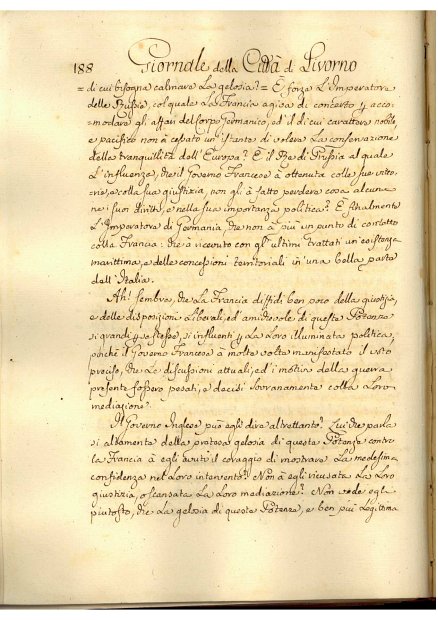 188 Giornale della Città di Livorno
= di cui bisogna calmare La gelosia? = È forza L'Imperatore
delle Russie, col quale La Francia agiva di concerto p acco-
=modare gli affari del Corpo Germanico, ed il di cui carattere nobile,
e pacifico non à cessato un'istante di volere La conservazione
della tranquillità dell'Europa? È il Re di Prussia al quale
L'influenza, che il Governo Francese à ottenuta colle sue vitto-
rie, e colla sua giustizia, non gli à fatto perdere cosa alcuna
ne i suoi diritti, e nella sua importanza politica? È finalmente
L'Imperatore di Germania, che non à più un punto di contatto
colla Francia: che à ricevuto con gli ultimi trattati un'esistenza
marittima, e delle concessioni territoriali in una bella parte
dell'Italia.
Ah! sembra, che La Francia diffidi ben poco della giustizia,
e delle disposizioni Liberali, ed amichevole di queste Potenze
si grandi p se stesse, si influenti p La Loro illuminata politica,
poichè il Governo Francese à molte volte manifestato il voto
preciso, che Le discussioni attuali, ed i motivi della guerra
presente fossero pesati, e decisi Sovranamente colla Loro
mediazione.
Il Governo Inglese può egli dire altrettanto? Lui che parla
si altamente della pretesa gelosia di queste Potenze contro
la Francia à egli avuto il coraggio di mostrare La medesima
confidenza nel Loro intervento? Non à egli ricusata La Loro
giustizia, o scansata La Loro mediazione? Non vede egli
piutosto, che La gelosia di queste Potenze, e ben più Legittima